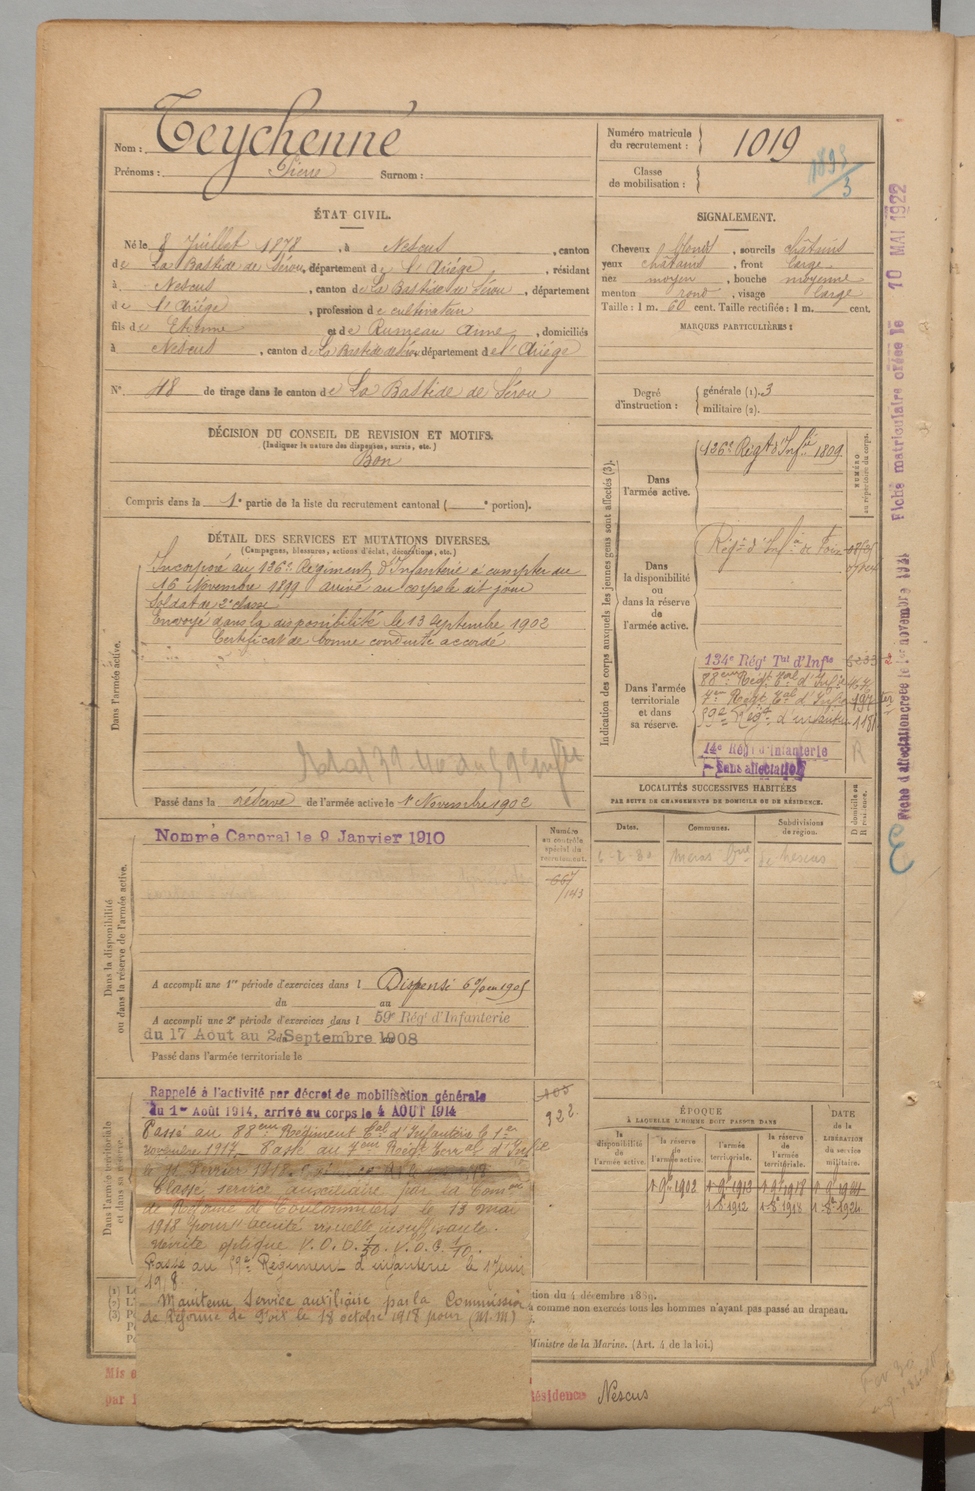 Nom : Teychenné
Prénoms : Pierre Surnom :
Numéro matricule du recrutement : 1019
Classe de mobilisation :
1898/3
ÉTAT CIVIL.
Né le 8 Juillet 1878, à Nescus, canton
de La Bastide de Sérou, département de l'Ariége, résidant
à Nescus, canton de La Bastide de Sérou, département
de l'Ariége, profession de cultivateur
fils de Etienne et de Rumeau Anne, domiciliés
à Nescus, canton de La Bastide de Sérou, département de l'Ariége
N° 48 de tirage dans le canton de La Bastide de Sérou
SIGNALEMENT.
Cheveux blond, sourcils châtains
yeux châtains, front large
nez moyen, bouche moyenne
menton rond, visage large
Taille : 1 m. 60 cent. Taille rectifiée : 1 m. cent.
MARQUES PARTICULIÈRES :
Degré d'instruction : générale (1). 3
militaire (2).
DÉCISION DU CONSEIL DE REVISION ET MOTIFS.
(Indiquer la nature des dispenses, sursis, etc.)
Bon
Compris dans la 1e partie de la liste du recrutement cantonal ( e portion).
DÉTAIL DES SERVICES ET MUTATIONS DIVERSES.
(Campagnes, blessures, actions d'éclat, décorations, etc.)
Dans l'armée active.
Incorporé au 136e Régiment d'Infanterie à compter du
16 Novembre 1899 arrivé au corps le dit jour
Soldat de 2e classe
Envoyé dans la disponibilité le 13 Septembre 1902
Certificat de bonne conduite accordé
Passé dans la réserve de l'armée active le 1er Novembre 1902
Indication des corps auxquels les jeunes gens sont affectés (3).
Dans l'armée active.
136e Régt d'Infie 1809
NUMÉRO au répertoire du corps.
Dans la disponibilité ou dans la réserve de l'armée active.
Régt d'Infie de Foix
Dans l'armée territoriale et dans sa réserve.
134e Régt Tal d'Infie
88eme Régt Tal d'Infie
7em Régt Tal d'Infie
59e Régt d'infanterie 1181
14e Régt d'Infanterie
Sans affectation
R
LOCALITÉS SUCCESSIVES HABITÉES
PAR SUITE DE CHANGEMENTS DE DOMICILE OU DE RÉSIDENCE.
Dates. Communes. Subdivisions de région. D domicile ou R résidence.
de Nescus
Dans la disponibilité ou dans la réserve de l'armée active.
Nommé Caporal le 9 Janvier 1910
Numéro au contrôle spécial du recrutement.
A accompli une 1re période d'exercices dans l Dispensé
du au
A accompli une 2e période d'exercices dans l 59e Régt d'Infanterie
du 17 Aout au 2 Septembre 1908
Passé dans l'armée territoriale le
Dans l'armée territoriale et dans sa réserve.
Rappelé à l'activité par décret de mobilisation générale
du 1er Août 1914, arrivé au corps le 4 AOUT 1914
922
Passé au 88em Régiment Tal d'Infanterie le 1er
novembre 1917. Passé au 7em Régt Terral d'Infie
Classé service auxiliaire par la Comon
de Réforme de Coulommiers le 13 mai
1918 pour acuité visuelle insuffisante.
V.O.D. 1/50. V.O.G. 1/10.
Passé au 59e Régiment d'infanterie le 1 Juin
1918.
Maintenu Service auxiliaire par la Commission
de Réforme de Foix le 18 octobre 1918 pour (M.M)
ÉPOQUE
À LAQUELLE L'HOMME DOIT PASSER DANS
la disponibilité de l'armée active. la réserve de l'armée active. l'armée territoriale. la réserve de l'armée territoriale.
DATE de la LIBÉRATION du service militaire.
1 9bre 1902
tion du 4 décembre 1889.
comme non exercés tous les hommes n'ayant pas passé au drapeau.
Ministre de la Marine. (Art. 4 de la loi.)
Mis a
par l
Résidence Nescus
Fiche d'affectation créée le 1er novembre 1931
Fiche matriculaire créée le 10 MAI 1922